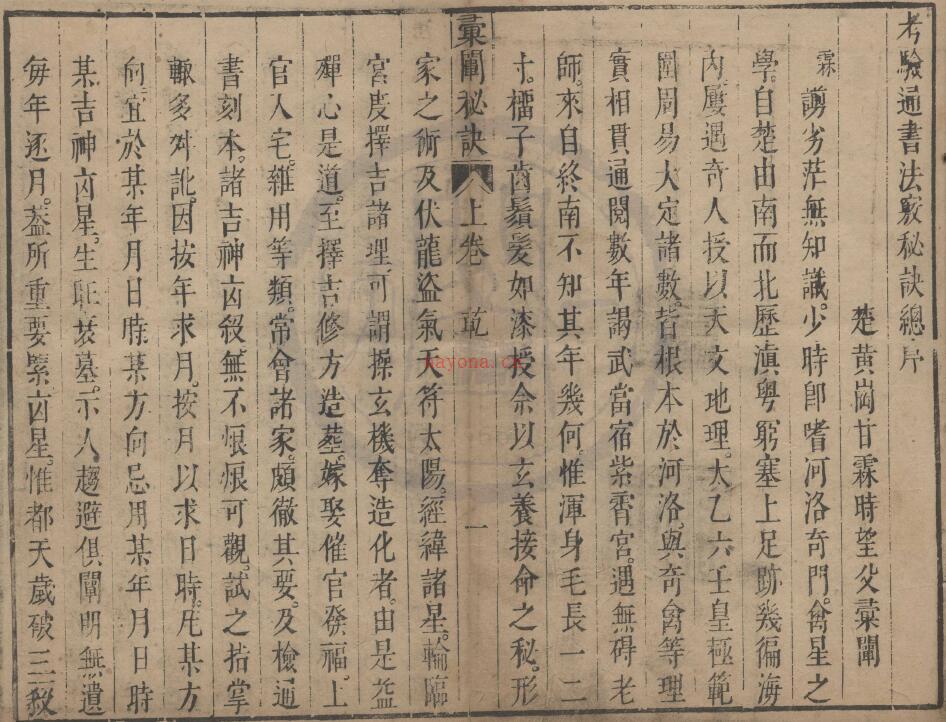 考驗通書法竅秘訣總序
楚黃崗甘霖時望父彙闡
霖謭劣茫無知識。少時即嗜河洛奇門。禽星之
學。自楚由南而北歷滇粵躬塞上足跡幾徧海
內屢遇奇人授以天文地理。太乙六壬皇極範
圍周易大定諸數。皆根本於河洛。與奇禽等理
實相貫通閱數年謁武當宿紫霄宮。遇無碍老
師。來自終南不知其年幾何。惟渾身毛長一二
寸。櫺子齒鬚髮如漆授余以玄養接命之秘。形
彙闡秘訣 上卷 乾 一
家之術及伏龍盜氣天符太陽。經緯諸星。輪臨
宮度擇吉諸理。可謂操玄機奪造化者。由是益
殫心是道。至擇吉修方造塟。嫁娶催官發福。上
官入宅。雜用等類。常會諸家。頗徹其要。及檢通
書刻本。諸吉神凶殺。無不恨恨可觀。試之指掌
輙多舛訛。因按年求月。按月以求日時。凡某方
向宜於某年月日時。某方向忌用某年月日時
某吉神凶星。生旺衰墓。示人趨避俱闡明無遺
每年逐月。葢所重要緊凶星。惟都天歲破三殺
nayona.cn